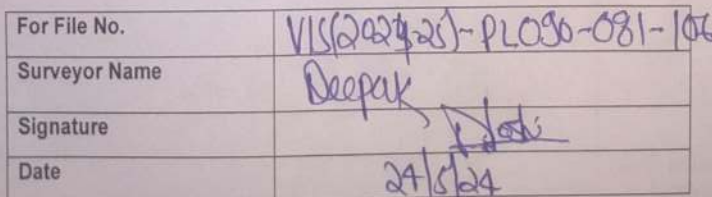 For File No. VIS(2024-25)-PL090-081-106
Surveyor Name Deepak
Signature
Date 24/5/24